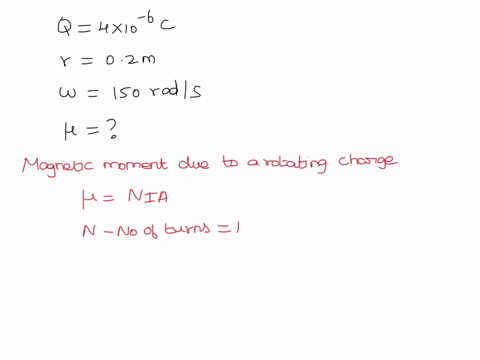 Q = 4×10⁻⁶ C
r = 0.2m
ω = 150 rad/s
μ = ?
Magnetic moment due to a rotating charge
μ = NIA
N - No of turns = 1